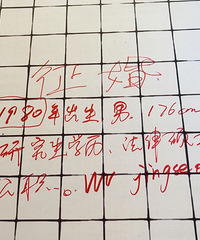 征婚
1980年出生.男.176cm
研究生学历、法律硕
公职…。WV jingse